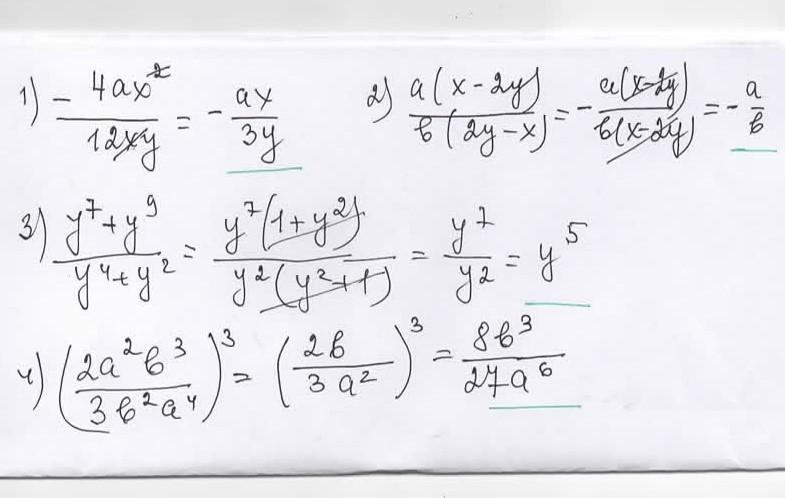 1) - 4ax² / 12xy = - ax / 3y
2) a(x-2y) / b(2y-x) = - a(x-2y) / b(x-2y) = - a / b
3) y⁷+y⁹ / y⁴+y² = y⁷(1+y²) / y²(y²+1) = y⁷ / y² = y⁵
4) (2a²b³ / 3b²a⁴)³ = (2b / 3a²)³ = 8b³ / 27a⁶